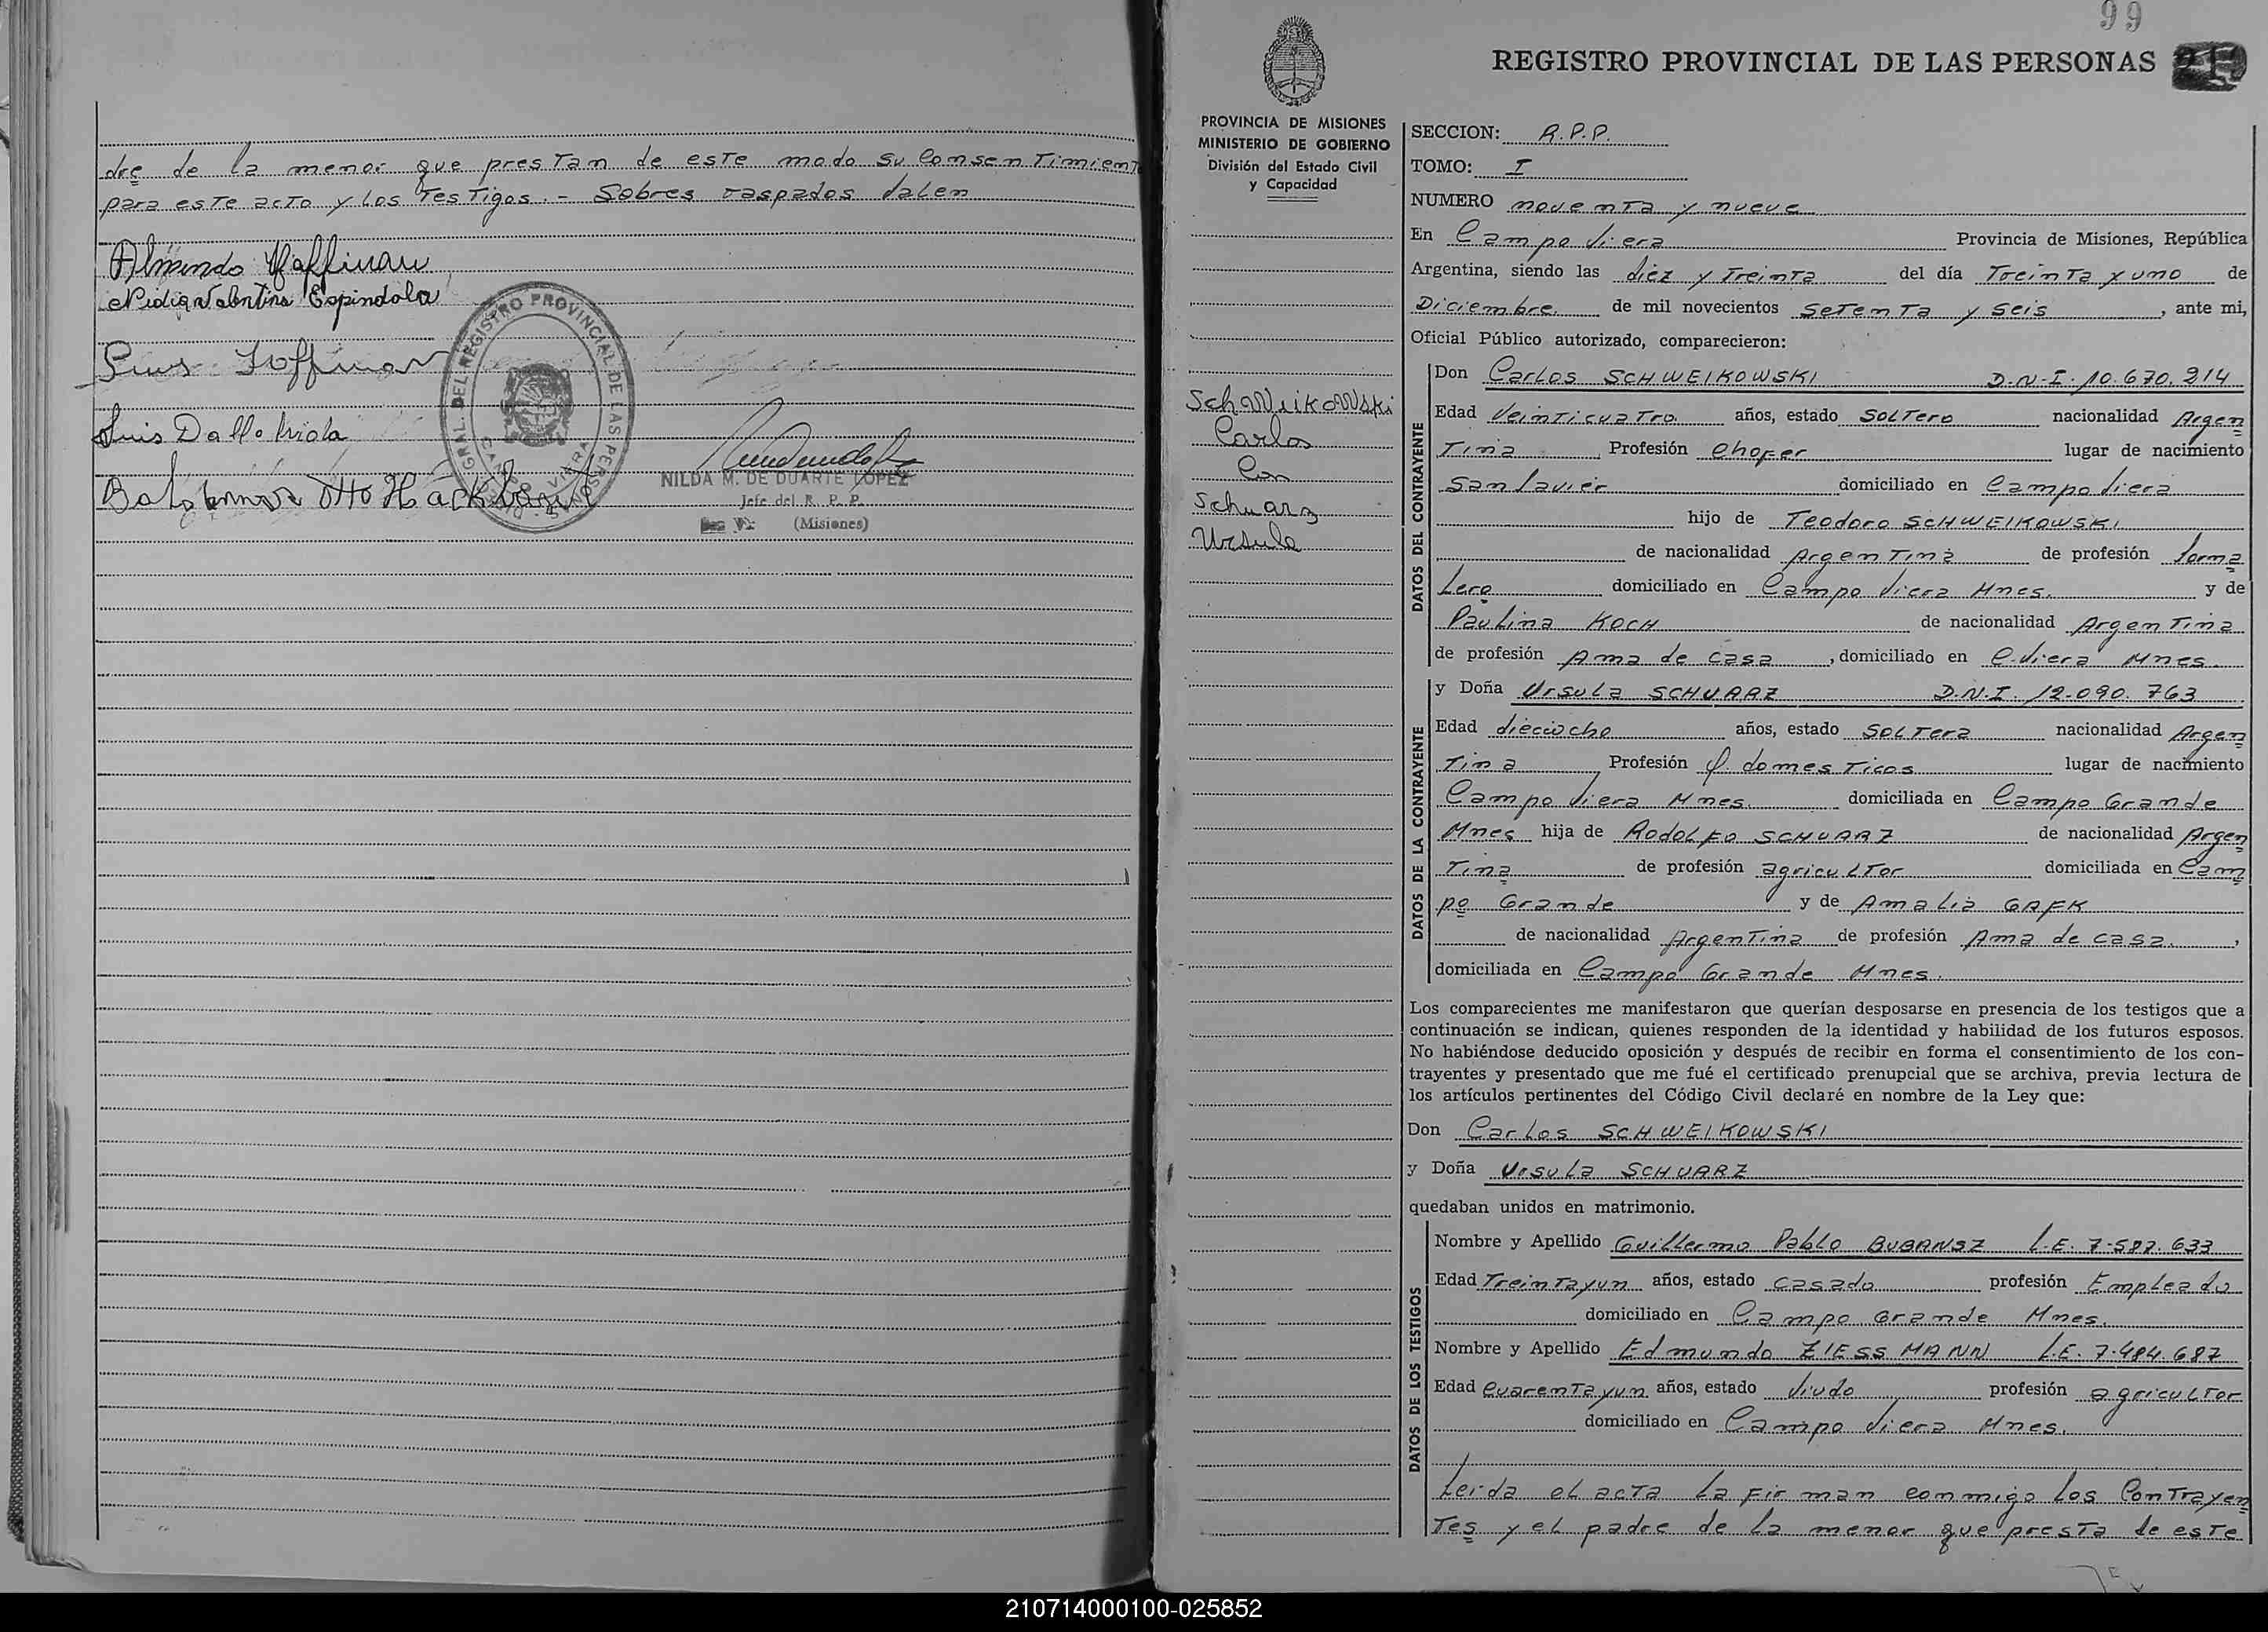 dre de la menor que prestan de este modo su Consentimient
para este acto y los Testigos. - Sobres raspados Valen
Almindo Hoffman
Nidia Valentina Espindola
Hoffman
Luis Dalla
Otto
REGISTRO PROVINCIAL DE LAS PERSONAS
NILDA M. DE DUARTE LOPEZ
Jefe del R. P. P.
(Misiones)
99
REGISTRO PROVINCIAL DE LAS PERSONAS
PROVINCIA DE MISIONES
MINISTERIO DE GOBIERNO
División del Estado Civil
y Capacidad
Schweikowski
Carlos
Con
Schuarz
Ursula
SECCION: R.P.P.
TOMO: I
NUMERO noventa y nueve
En Campo Viera Provincia de Misiones, República
Argentina, siendo las diez y Treinta del día Treinta y uno de
Diciembre de mil novecientos SeTenTa y Seis, ante mi,
Oficial Público autorizado, comparecieron:
DATOS DEL CONTRAYENTE
Don Carlos SCHWEIKOWSKI D.N.I. 10.670.214
Edad VeinTicuaTro años, estado SolTero nacionalidad Argen
Tina Profesión Chofer lugar de nacimiento
San Javier domiciliado en Campo Viera
hijo de Teodoro SCHWEIKOWSKI
de nacionalidad ArgenTina de profesión Jorna
Lero domiciliado en Campo Viera Mnes. y de
Paulina KOCH de nacionalidad ArgenTina
de profesión Ama de casa, domiciliado en C. Viera Mnes.
DATOS DE LA CONTRAYENTE
y Doña Ursula SCHUARZ D.N.I. 12.090.763
Edad dieciocho años, estado SolTera nacionalidad Argen
Tina Profesión Q. domesTicos lugar de nacimiento
Campo Viera Mnes. domiciliada en Campo Grande
Mnes hija de Rodolfo SCHUARZ de nacionalidad Argen
Tina de profesión agriculTor domiciliada en Cam
po Grande y de Amalia GAFK
de nacionalidad ArgenTina de profesión Ama de casa.,
domiciliada en Campo Grande Mnes.
Los comparecientes me manifestaron que querían desposarse en presencia de los testigos que a
continuación se indican, quienes responden de la identidad y habilidad de los futuros esposos.
No habiéndose deducido oposición y después de recibir en forma el consentimiento de los con-
trayentes y presentado que me fué el certificado prenupcial que se archiva, previa lectura de
los artículos pertinentes del Código Civil declaré en nombre de la Ley que:
Don Carlos SCHWEIKOWSKI
y Doña Ursula SCHUARZ
quedaban unidos en matrimonio.
DATOS DE LOS TESTIGOS
Nombre y Apellido Guillermo Pablo BUBANSZ L.E. 7.587.633
Edad Treintayun años, estado casado profesión Empleado
domiciliado en Campo Grande Mnes.
Nombre y Apellido Edmundo ZIESSMANN L.E. 7.484.687
Edad Cuarentayun años, estado Viudo profesión agriculTor
domiciliado en Campo Viera Mnes.
Leida el acta la firman conmigo los Contrayen
Tes y el padre de la menor que presta de este
210714000100-025852